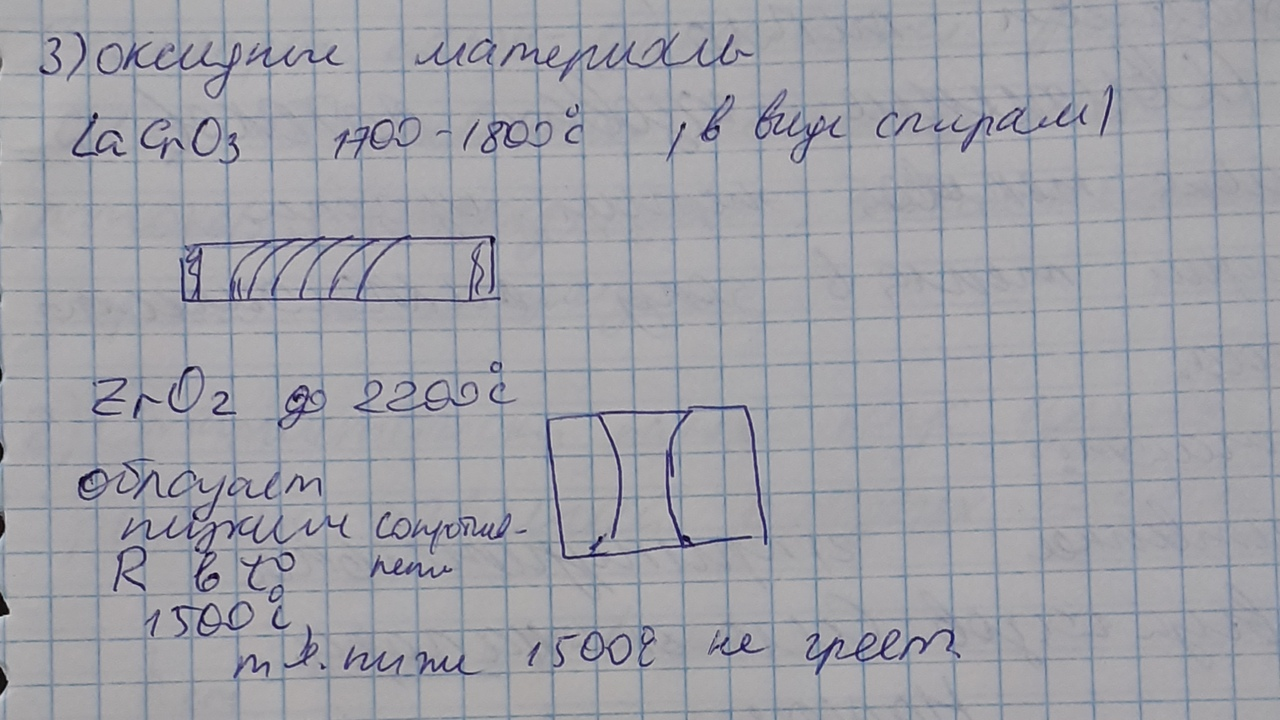 3) оксидные материалы
LaCrO3 1700-1800°C , в виде спирали)
ZrO2 до 2200°C
образует
низким сопротив-
R в t° лением
1500°C,
т.к. ниже 1500°C не греет